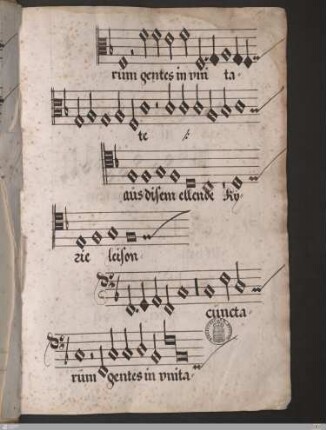 rum gentes in vni ta
te
aus disem ellende Ky
rie leison
cuncta
rum gentes in vnita